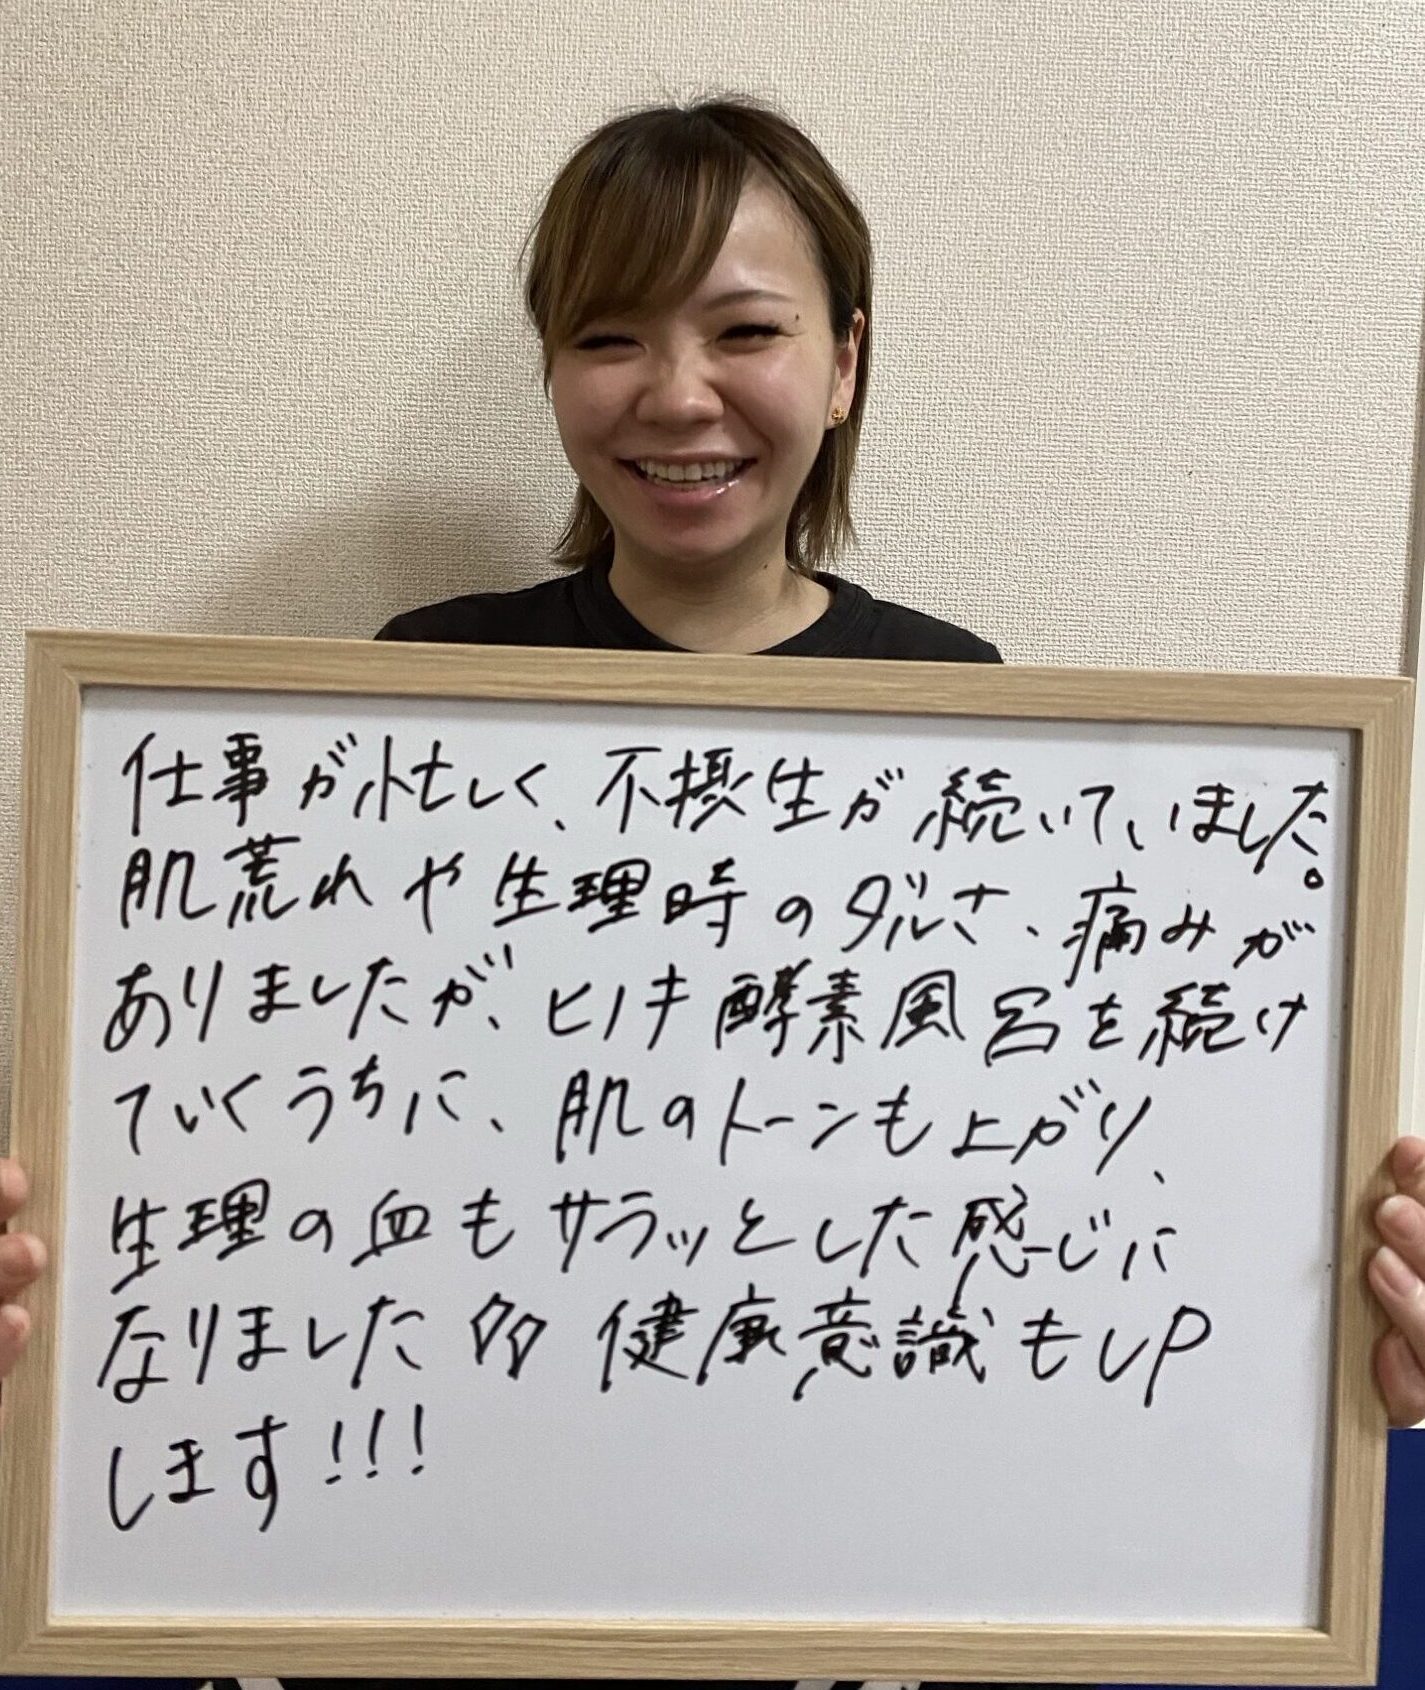 仕事が忙しく、不摂生が続いていました。
肌荒れや生理時のダルさ、痛みが
ありましたが、ヒノキ酵素風呂を続け
ていくうちに、肌のトーンも上がり、
生理の血もサラッとした感じに
なりました 健康意識もUP
します!!!